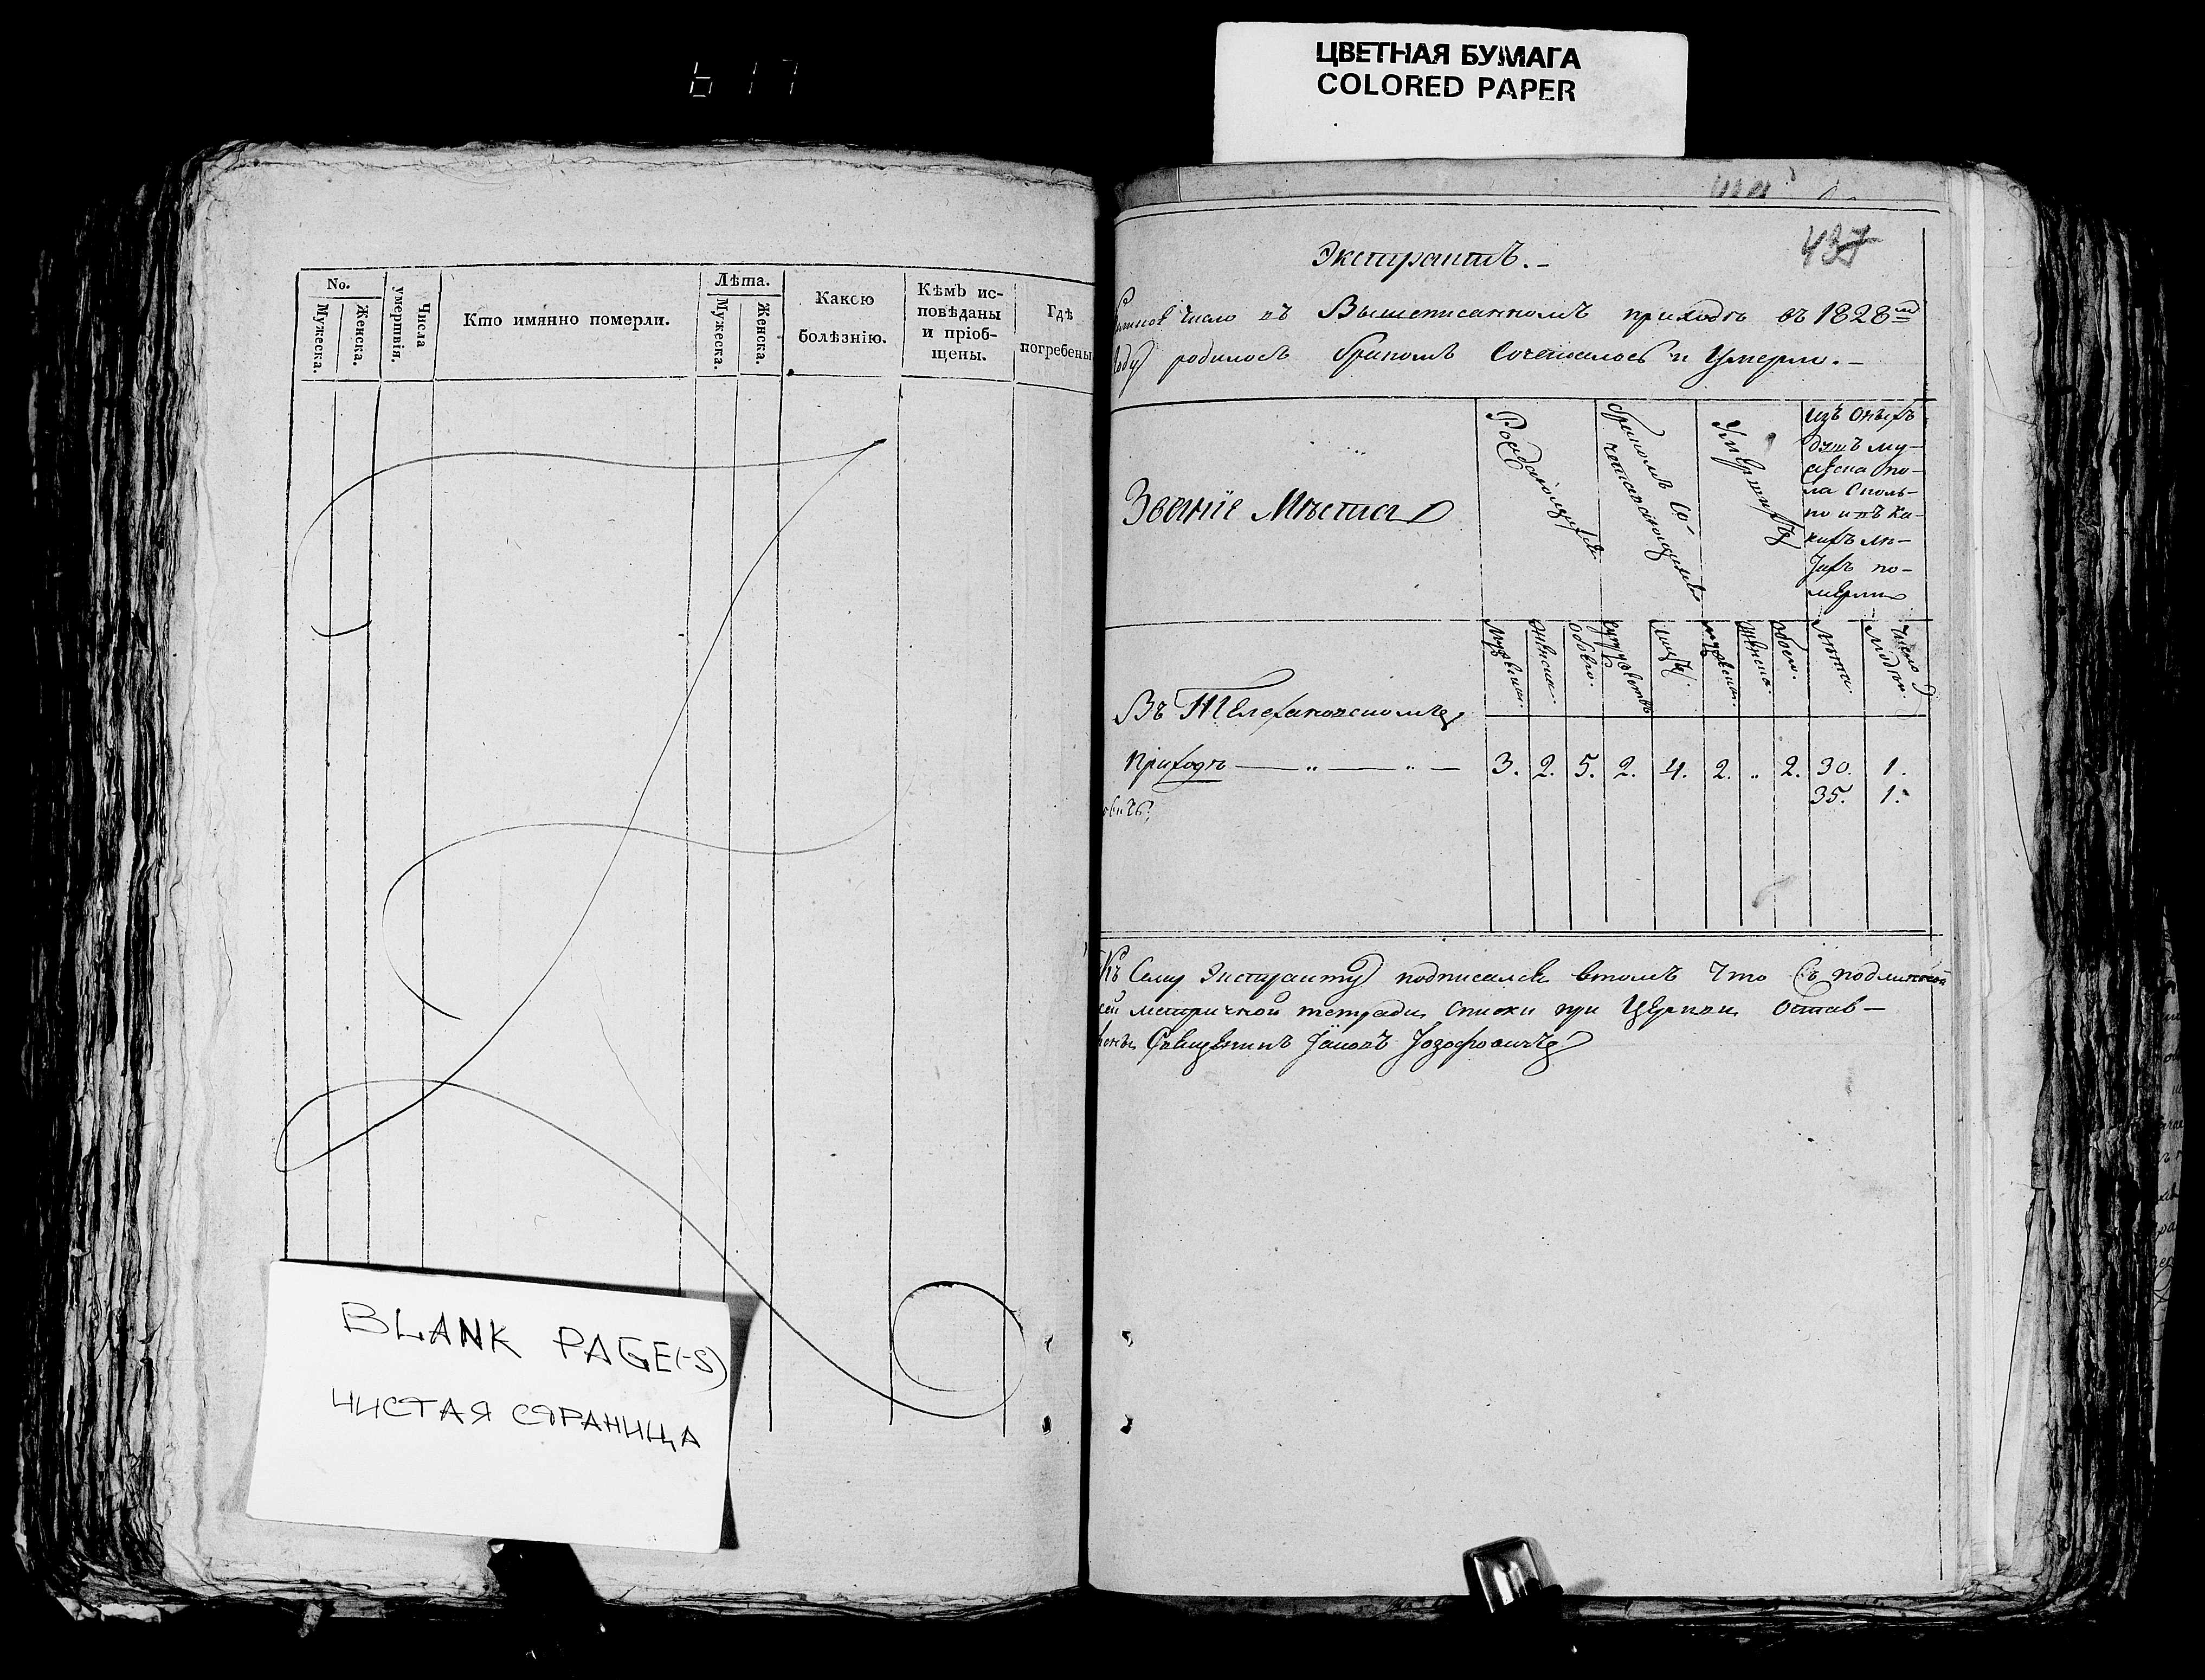 617
ЦВЕТНАЯ БУМАГА
COLORED PAPER
No.
Мужеска.
Женска.
Числа умертвія.
Кто имянно померли.
Лѣта.
Мужеска.
Женска.
Какою
болѣзнію.
Кѣмъ ис-
повѣданы
и пріоб-
щены.
Гдѣ
погребены
BLANK PAGE(-S)
ЧИСТАЯ СТРАНИЦА
437
Экстрактъ.-
число въ Вышеписанномъ приходѣ въ 1828мъ
Году родилось бракомъ Сочеталось и Умерло.-
Званіе Мѣста
Рождающихся
бракомъ Со-
четавающихся
Умершихъ
изъ Оныхъ
душъ му-
жеска по-
ла Сколь-
ко и въ ка-
кихъ лѣ-
тахъ по-
мерли
мужеска.
женска.
обоего.
супружествъ
лицъ.
мужеска.
женска.
обоего.
лѣта.
число людей.
Въ Телехановскомъ
приходѣ — „ — „ — 3. 2. 5. 2. 4. 2. „ 2. 30. 1.
35. 1.
овичъ;
Къ Сему Экстракту подписался втомъ что Съ подлинной
сей метричной тетради списки при Церкви Остав-
лены Священникъ Іаковъ Іозофовичъ